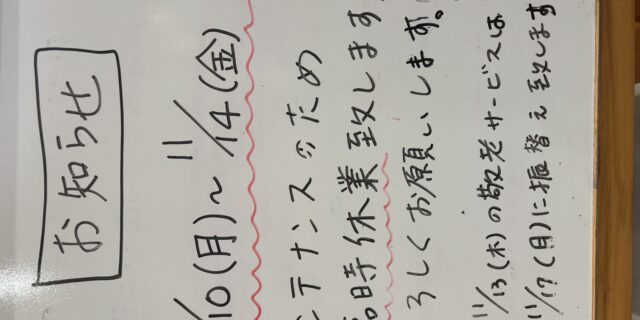 お知らせ
/10(月)～11/14(金)
ンテナンスのため
時休業致します
ろしくお願いします。
11/13(木)の敬老サービスは
11/17(月)に振替え致します